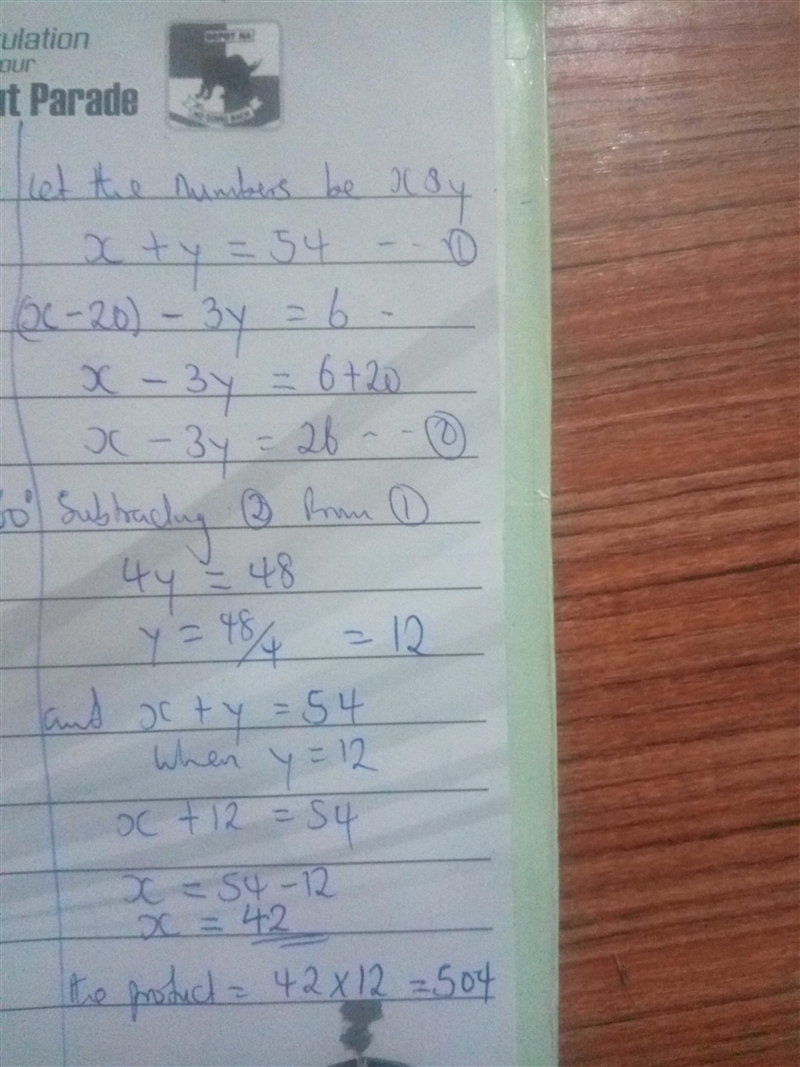 ulation
our
ut Parade
DEPOT NA
NO GOING BACK
Let the numbers be x & y
x + y = 54 -- ①
(x-20) - 3y = 6 -
x - 3y = 6+20
x - 3y = 26 -- ②
Subtracting ② from ①
4y = 48
y = 48/4 = 12
and x + y = 54
when y = 12
x + 12 = 54
x = 54 - 12
x = 42
the product = 42 x 12 = 504